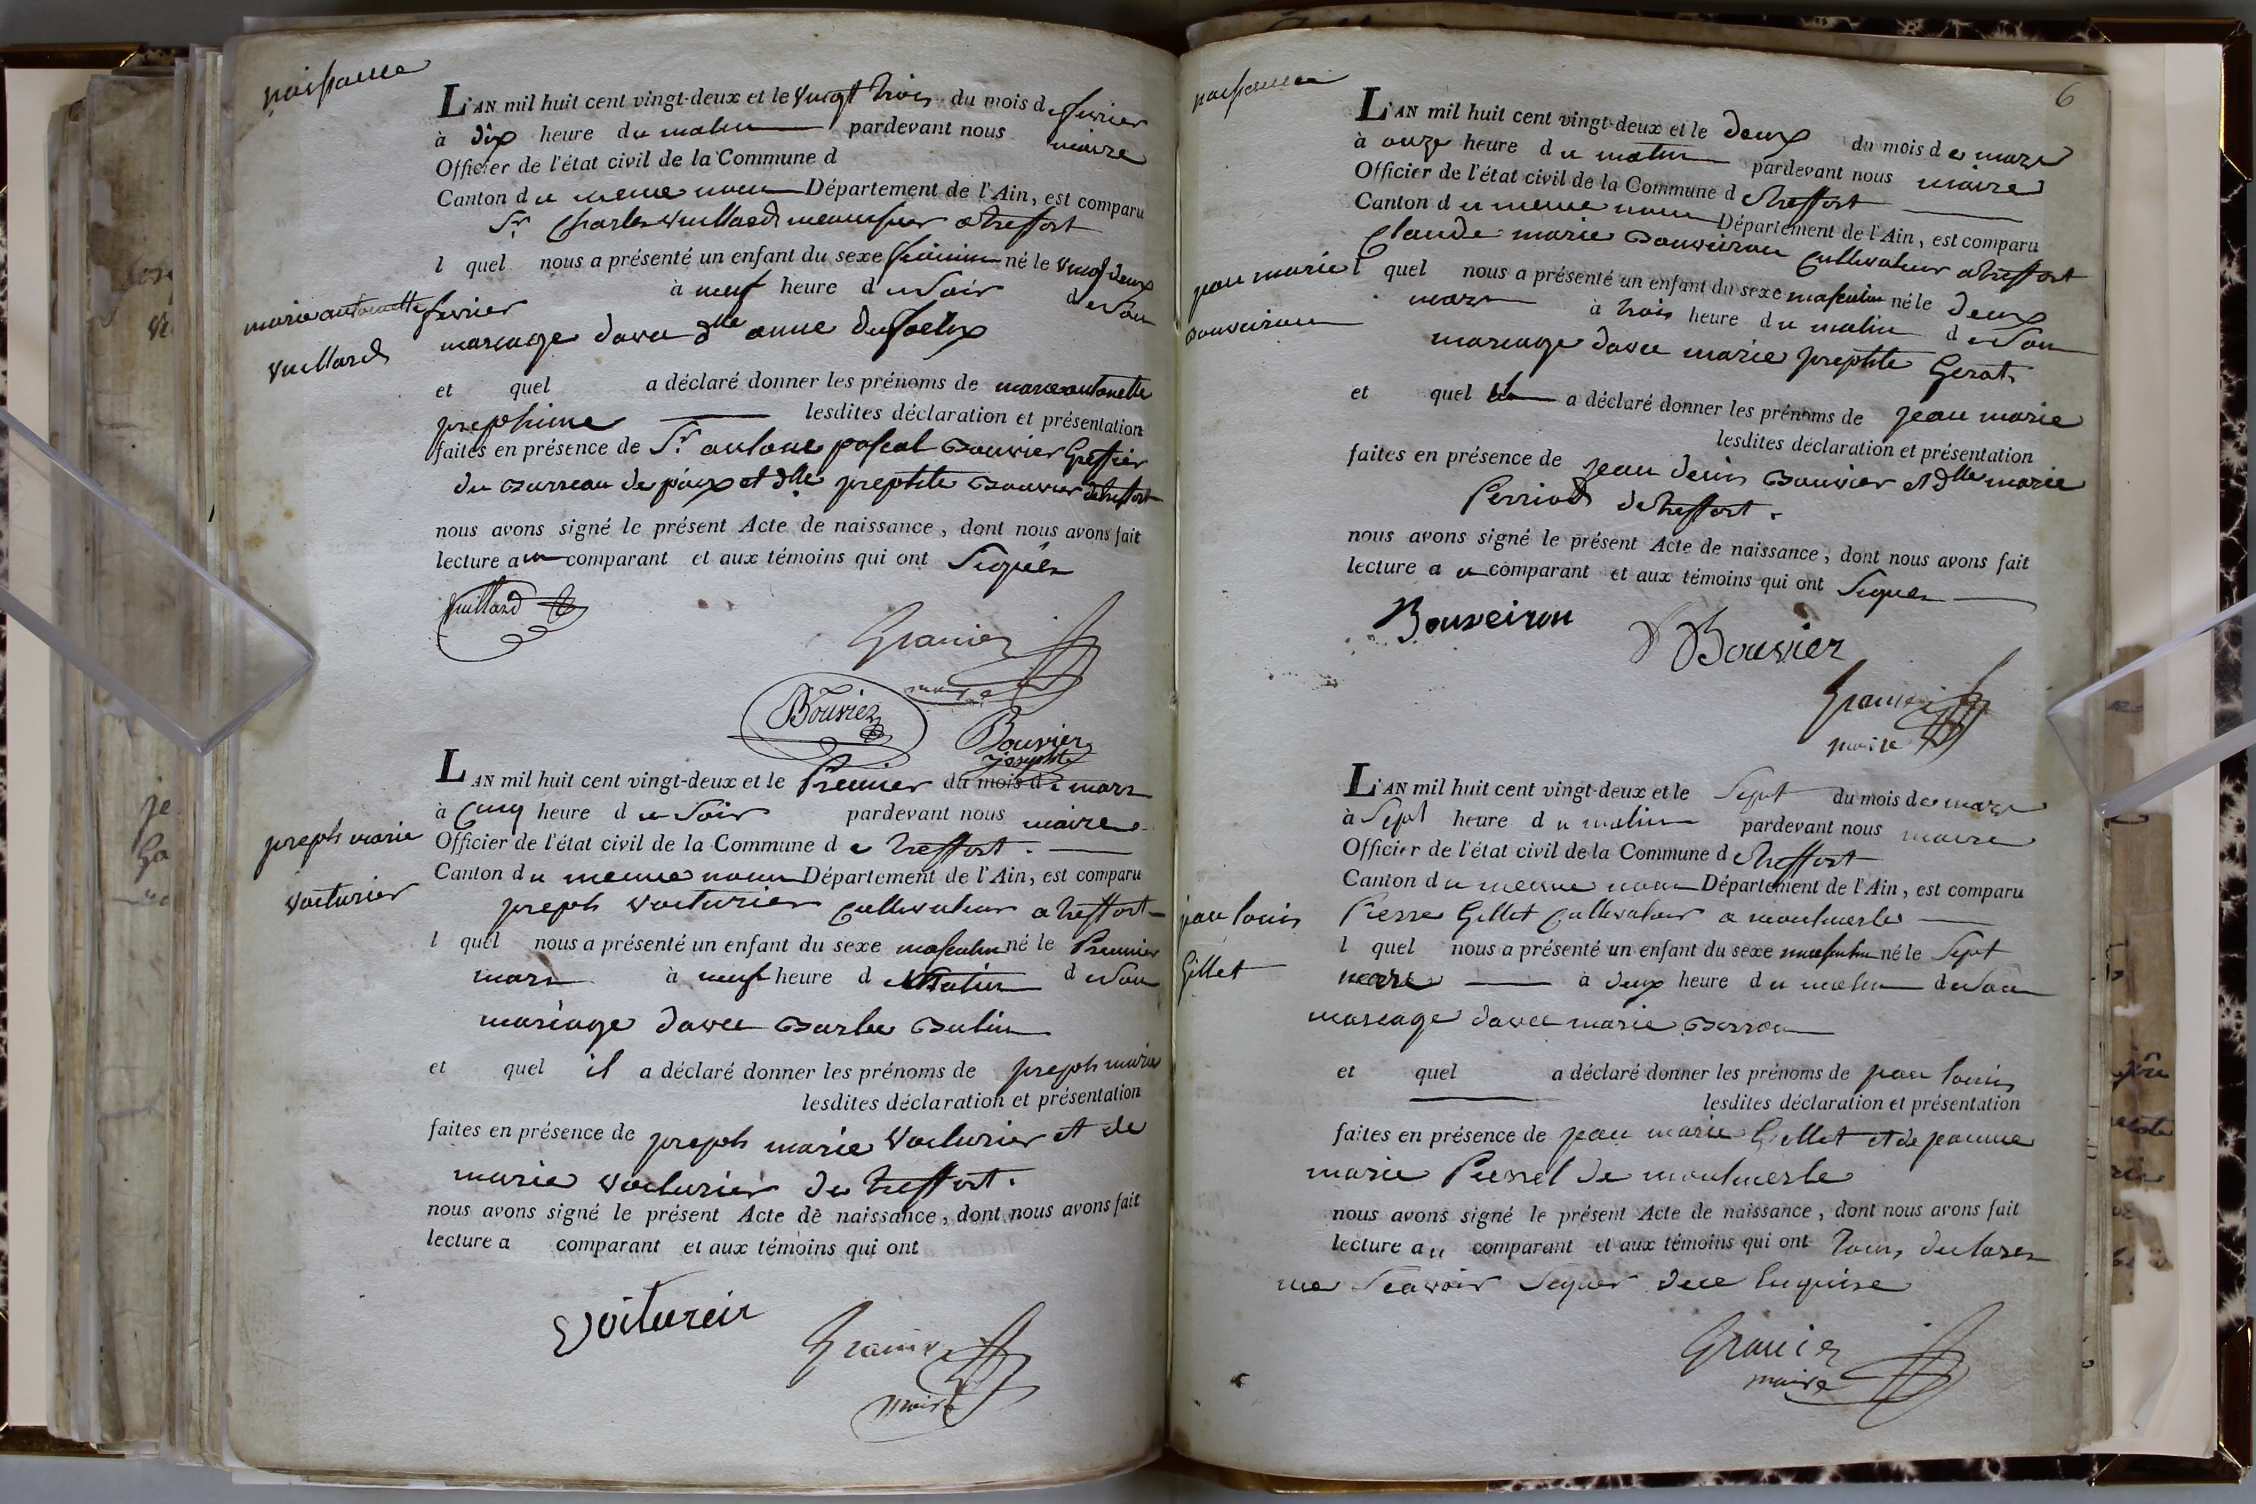 naissance
L'AN mil huit cent vingt-deux et le vingt trois du mois de fevrier
à dix heure du matin pardevant nous maire
Officier de l'état civil de la Commune d
Canton du meme nom Département de l'Ain, est comparu
Sr. Charles Vuillard a treffort
l quel nous a présenté un enfant du sexe feminin né le vingt deux
fevrier à neuf heure du soir de son
marie antoinette
vuillard
mariage davec dlle anne
et quel a déclaré donner les prénoms de marie antoinette
josephine lesdites déclaration et présentation
faites en présence de Sr. antoine pascal Bouvier Greffier
du Bureau de paix et dlle josephte Bouvier de treffort
nous avons signé le présent Acte de naissance, dont nous avons fait
lecture au comparant et aux témoins qui ont signés
Vuillard
Granier
maire
Bouvier
Bouvier
josephte
L'AN mil huit cent vingt-deux et le Premier du mois de mars
à Cinq heure du soir pardevant nous maire
Officier de l'état civil de la Commune de treffort.
joseph marie
voiturier
Canton du meme nom Département de l'Ain, est comparu
joseph voiturier Cultivateur a treffort
l quel nous a présenté un enfant du sexe masculin né le Premier
mars à neuf heure du matin de son
mariage davec Barbe Butin
et quel il a déclaré donner les prénoms de joseph marie
lesdites déclaration et présentation
faites en présence de joseph marie Voiturier et de
marie voiturier de treffort.
nous avons signé le présent Acte de naissance, dont nous avons fait
lecture a comparant et aux témoins qui ont
Voitureir
Granier
maire
6
naissance
L'AN mil huit cent vingt-deux et le deux du mois de mars
à onze heure du matin pardevant nous maire
Officier de l'état civil de la Commune de treffort
Canton du meme nom Département de l'Ain, est comparu
Claude marie Bouveiron Cultivateur a treffort
jean marie
Bouveiron
l quel nous a présenté un enfant du sexe masculin né le deux
mars à trois heure du matin de son
mariage davec marie josephte Gerat
et quel il a déclaré donner les prénoms de jean marie
lesdites déclaration et présentation
faites en présence de jean denis Bouvier et dlle marie
Perriod de treffort.
nous avons signé le présent Acte de naissance, dont nous avons fait
lecture a u comparant et aux témoins qui ont signés
Bouveiron
D Bouvier
Granier
maire
L'AN mil huit cent vingt-deux et le Sept du mois de mars
à Sept heure du matin pardevant nous maire
Officier de l'état civil de la Commune de treffort
Canton du meme nom Département de l'Ain, est comparu
jean louis
Gillet
Pierre Gillet Cultivateur a montmerle
l quel nous a présenté un enfant du sexe masculin né le Sept
mars à deux heure du matin de son
mariage davec marie Borron
et quel a déclaré donner les prénoms de jean louis
lesdites déclaration et présentation
faites en présence de jean marie Gillet et de jeanne
marie de montmerle
nous avons signé le présent Acte de naissance, dont nous avons fait
lecture au comparant et aux témoins qui ont tous declarés
ne Scavoir signer
Granier
maire